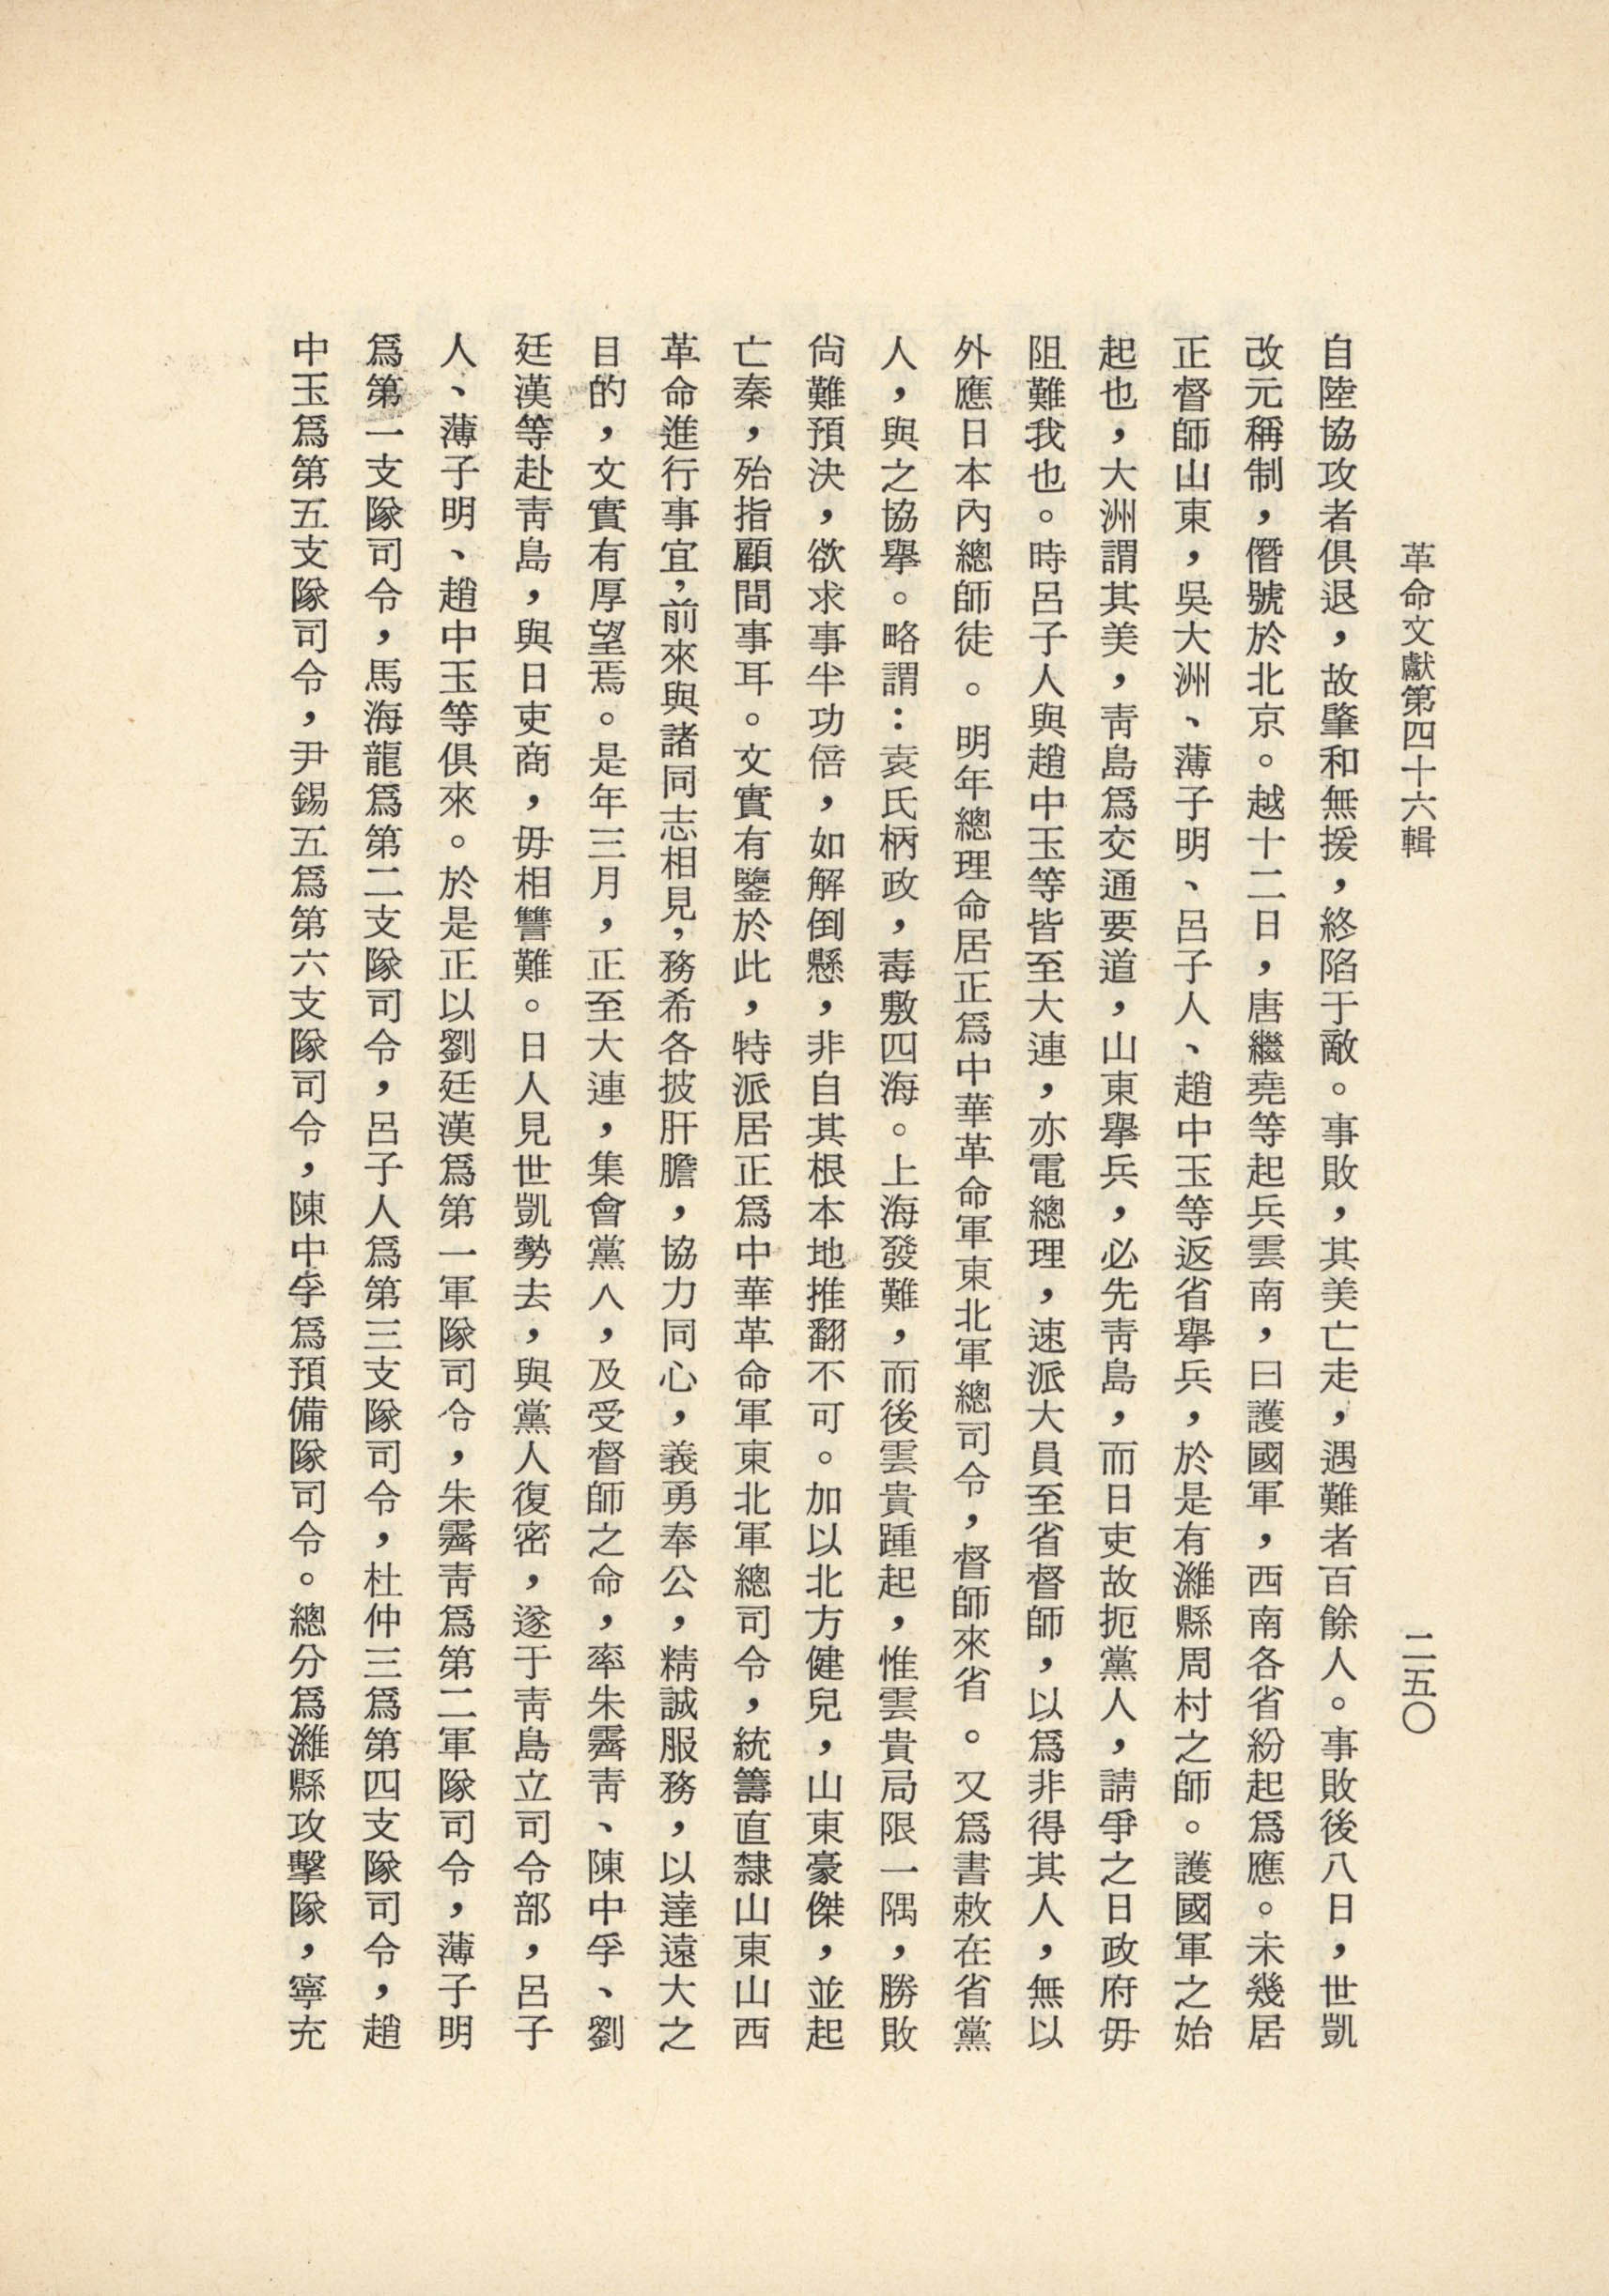 革命文獻第四十六輯
二五〇
自陸協攻者俱退，故肇和無援，終陷于敵。事敗，其美亡走，遇難者百餘人。事敗後八日，世凱
改元稱制，僭號於北京。越十二日，唐繼堯等起兵雲南，曰護國軍，西南各省紛起爲應。未幾居
正督師山東，吳大洲、薄子明、呂子人、趙中玉等返省舉兵，於是有濰縣周村之師。護國軍之始
起也，大洲謂其美，靑島爲交通要道，山東舉兵，必先靑島，而日吏故扼黨人，請爭之日政府毋
阻難我也。時呂子人與趙中玉等皆至大連，亦電總理，速派大員至省督師，以爲非得其人，無以
外應日本內總師徒。明年總理命居正爲中華革命軍東北軍總司令，督師來省。又爲書敕在省黨
人，與之協舉。略謂：袁氏柄政，毒敷四海。上海發難，而後雲貴踵起，惟雲貴局限一隅，勝敗
尙難預決，欲求事半功倍，如解倒懸，非自其根本地推翻不可。加以北方健兒，山東豪傑，並起
亡秦，殆指顧間事耳。文實有鑒於此，特派居正爲中華革命軍東北軍總司令，統籌直隸山東山西
革命進行事宜，前來與諸同志相見，務希各披肝膽，協力同心，義勇奉公，精誠服務，以達遠大之
目的，文實有厚望焉。是年三月，正至大連，集會黨人，及受督師之命，率朱霽靑、陳中孚、劉
廷漢等赴靑島，與日吏商，毋相讐難。日人見世凱勢去，與黨人復密，遂于靑島立司令部，呂子
人、薄子明、趙中玉等俱來。於是正以劉廷漢爲第一軍隊司令，朱霽靑爲第二軍隊司令，薄子明
爲第一支隊司令，馬海龍爲第二支隊司令，呂子人爲第三支隊司令，杜仲三爲第四支隊司令，趙
中玉爲第五支隊司令，尹錫五爲第六支隊司令，陳中孚爲預備隊司令。總分爲濰縣攻擊隊，寧充